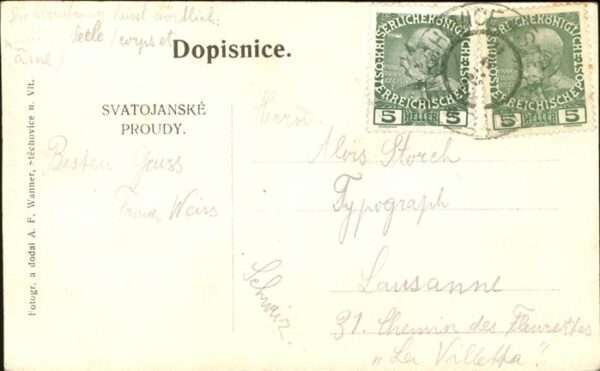 Seele / corps et
Dopisnice.
SVATOJANSKÉ
PROUDY.
Besten Gruss
Franz Weiss
Fotogr. a dodal A. F. Wanner, Štěchovice u. Vlt.
KAISERLICHE KÖNIGLICHE
ÖSTERREICHISCHE POST
5 HELLER 5
KAISERLICHE KÖNIGLICHE
ÖSTERREICHISCHE POST
5 HELLER 5
Alois Storch
Typograph
Lausanne
Schweiz.
31. Chemin des Fleurettes
„La Villetta".